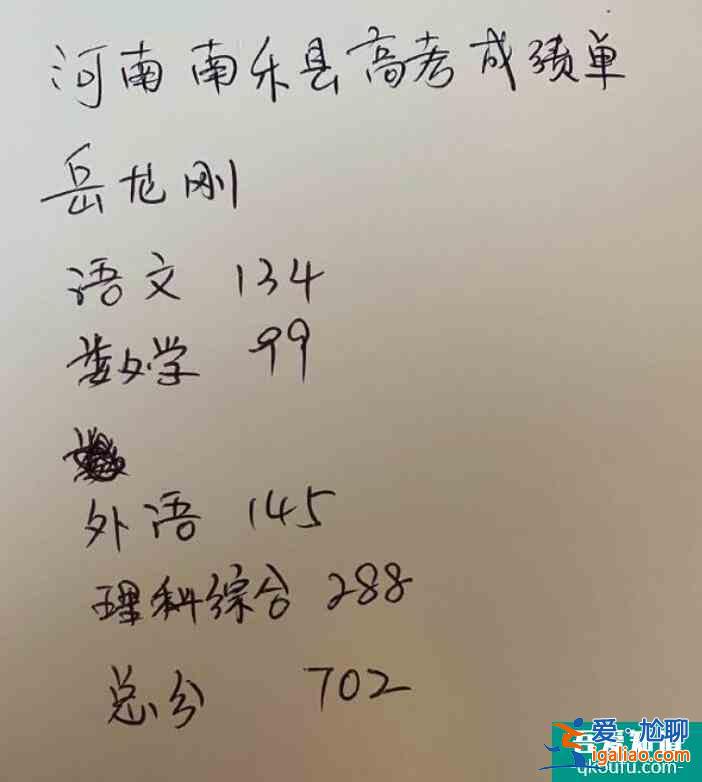 河南南乐县高考成绩单
岳龙刚
语文 134
数学 99
外语 145
理科综合 288
总分 702
爱尬聊
igaliao.com
qk5ufu.com-